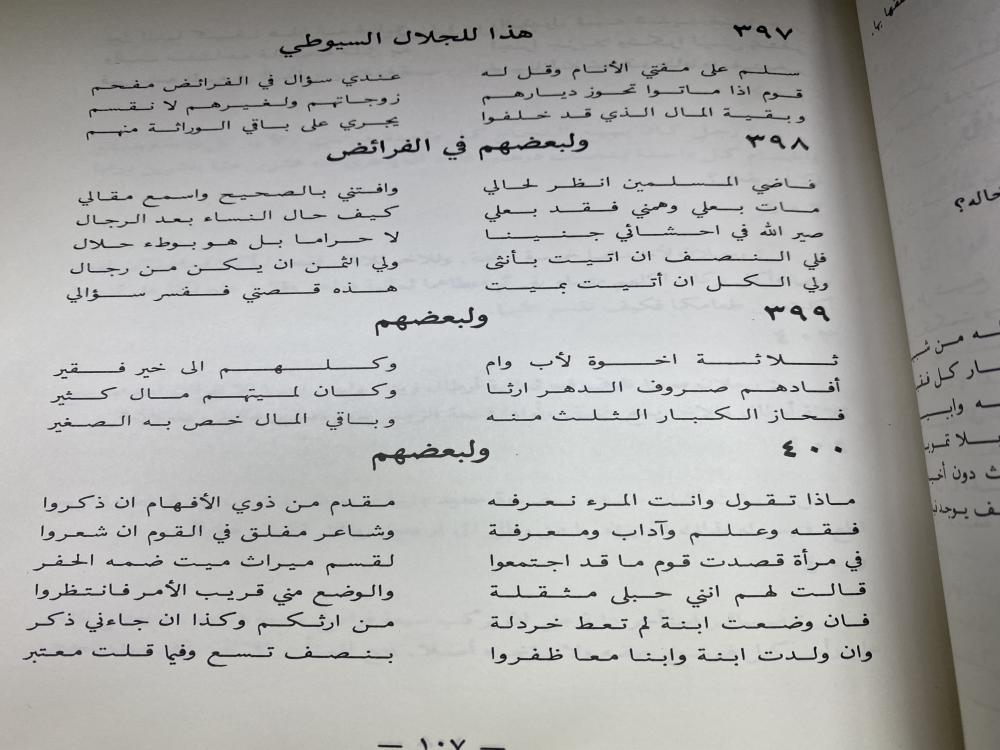 ٣٩٧ هذا للجلال السيوطي
سلم على مفتي الأنام وقل له عندي سؤال في الفرائض مفحم
قوم اذا ماتوا تحوز ديارهم زوجاتهم ولغيرهم لا نقسم
وبقية المال الذي قد خلفوا يجري على باقي الوراثة منهم
٣٩٨ ولبعضهم في الفرائض
فاضي المسلمين انظر لحالي وافتني بالصحيح واسمع مقالي
مات بعلي وهمني فقد بعلي كيف حال النساء بعد الرجال
صير الله في احشائي جنينا لا حراما بل هو بوطء حلال
فلي النصف ان اتيت بأنثى ولي الثمن ان يكن من رجال
ولي الكل ان أتيت بميت هذه قصتي ففسر سؤالي
٣٩٩ ولبعضهم
ثلاثة اخوة لأب وام وكلهم الى خير فقير
أفادهم صروف الدهر ارثا وكان لميتهم مال كثير
فحاز الكبار الثلث منه وباقي المال خص به الصغير
٤٠٠ ولبعضهم
ماذا تقول وانت المرء نعرفه مقدم من ذوي الأفهام ان ذكروا
فقه وعلم وآداب ومعرفة وشاعر مفلق في القوم ان شعروا
في مرأة قصدت قوم ما قد اجتمعوا لقسم ميراث ميت ضمه الحفر
قالت لهم انني حبلى مثقلة والوضع مني قريب الأمر فانتظروا
فان وضعت ابنة لم تعط خردلة من ارثكم وكذا ان جاءني ذكر
وان ولدت ابنة وابنا معا ظفروا بنصف تسع وفيما قلت معتبر
— ١٠٧ —
حاله؟